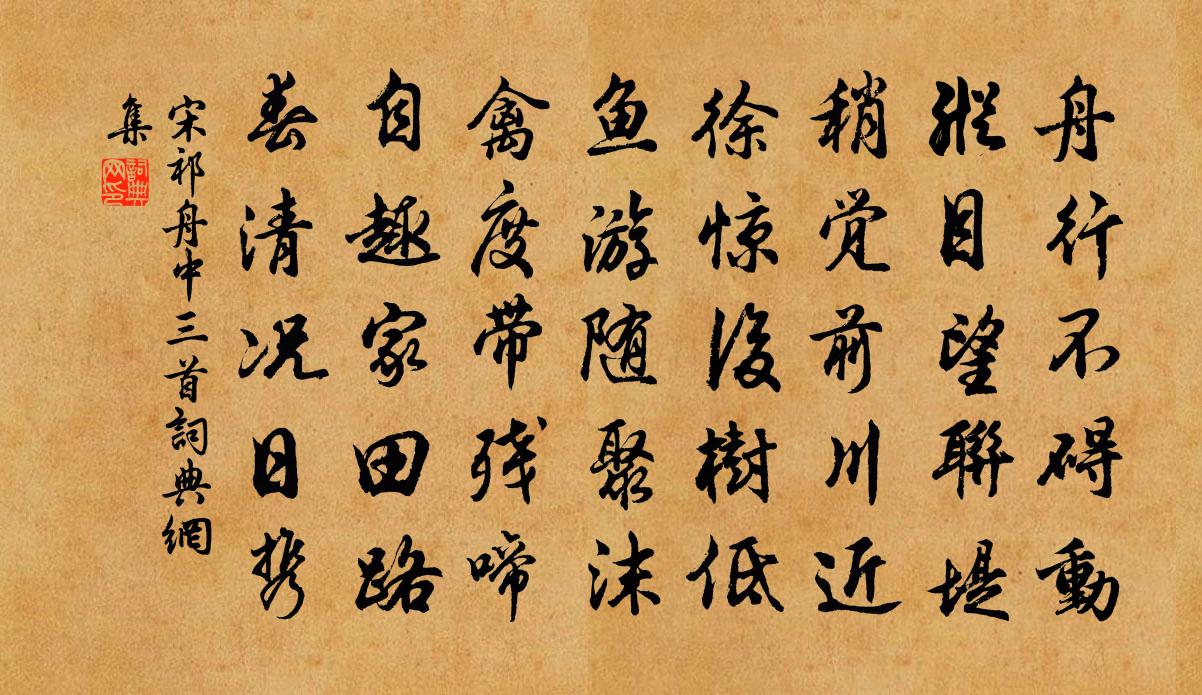 舟行不碍動
縱目望聯堤
稍觉前川近
徐惊後樹低
鱼游随聚沫
禽度带残啼
自趣家田路
春清况日携
宋祁舟中三首詞典網
集
詞典
网印